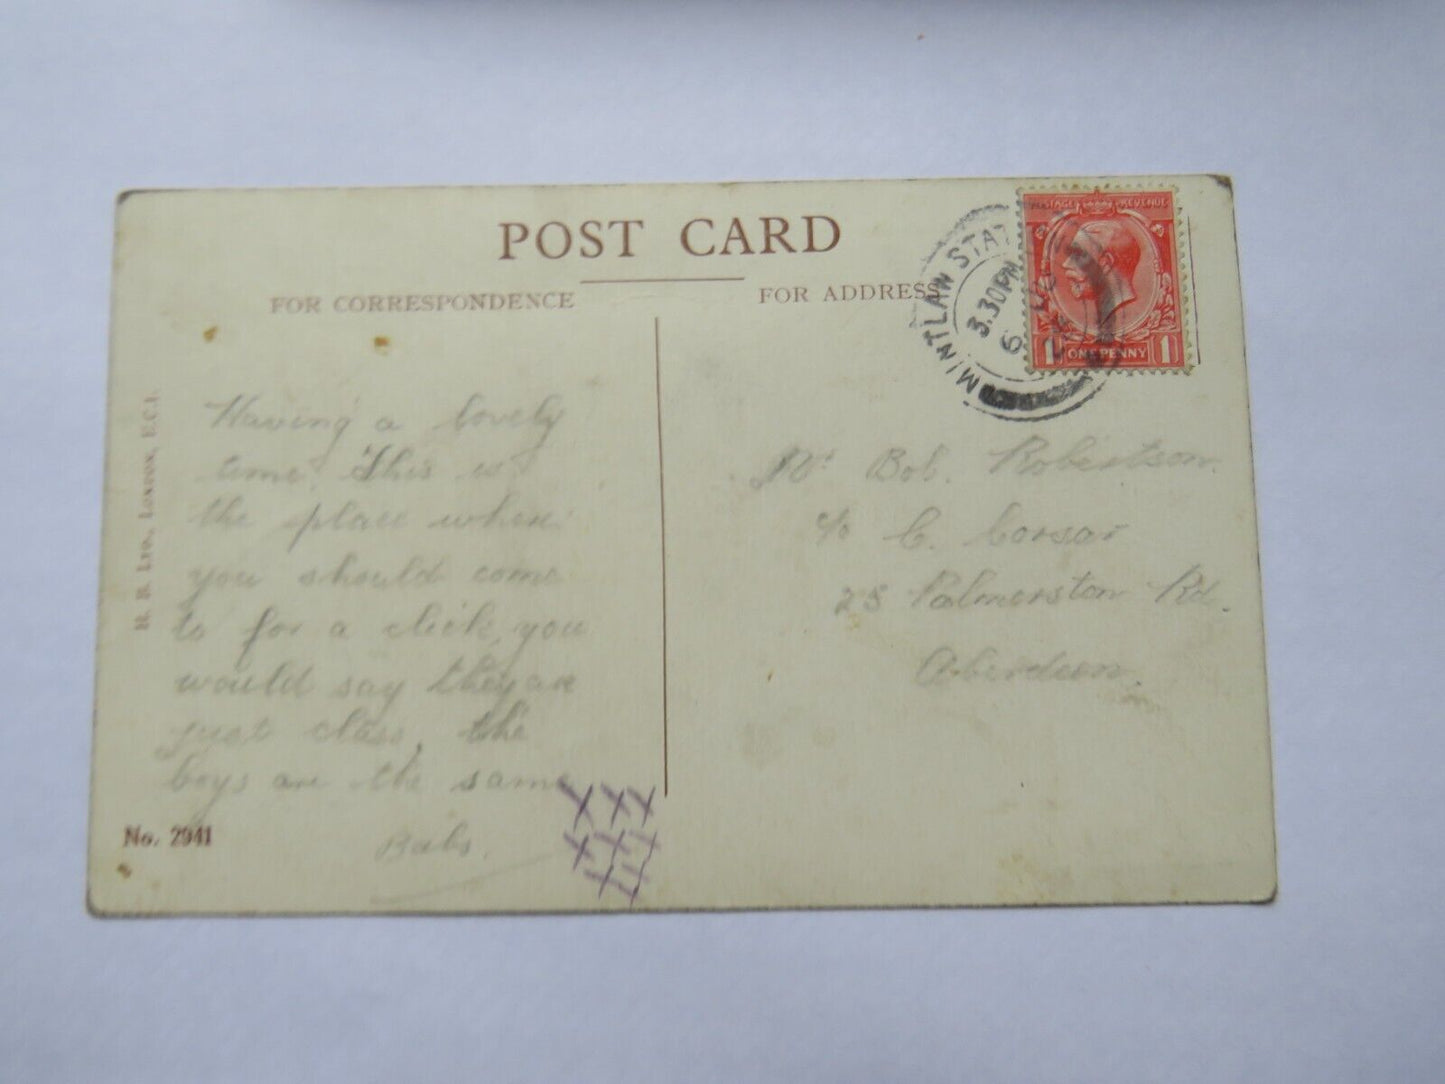 POST CARD
FOR CORRESPONDENCE
FOR ADDRESS
MINTLAW STAT
3.30PM
6
POSTAGE REVENUE
1 ONE PENNY 1
H. B. LTD., LONDON, E.C.1.
Having a lovely
time. This is
the place where
you should come
to for a click, you
would say they are
just class, the
boys are the same
Babs.
No. 2941
Mr Bob. Robertson
c/o C. Corsar
25 Palmerston Rd.
Aberdeen.